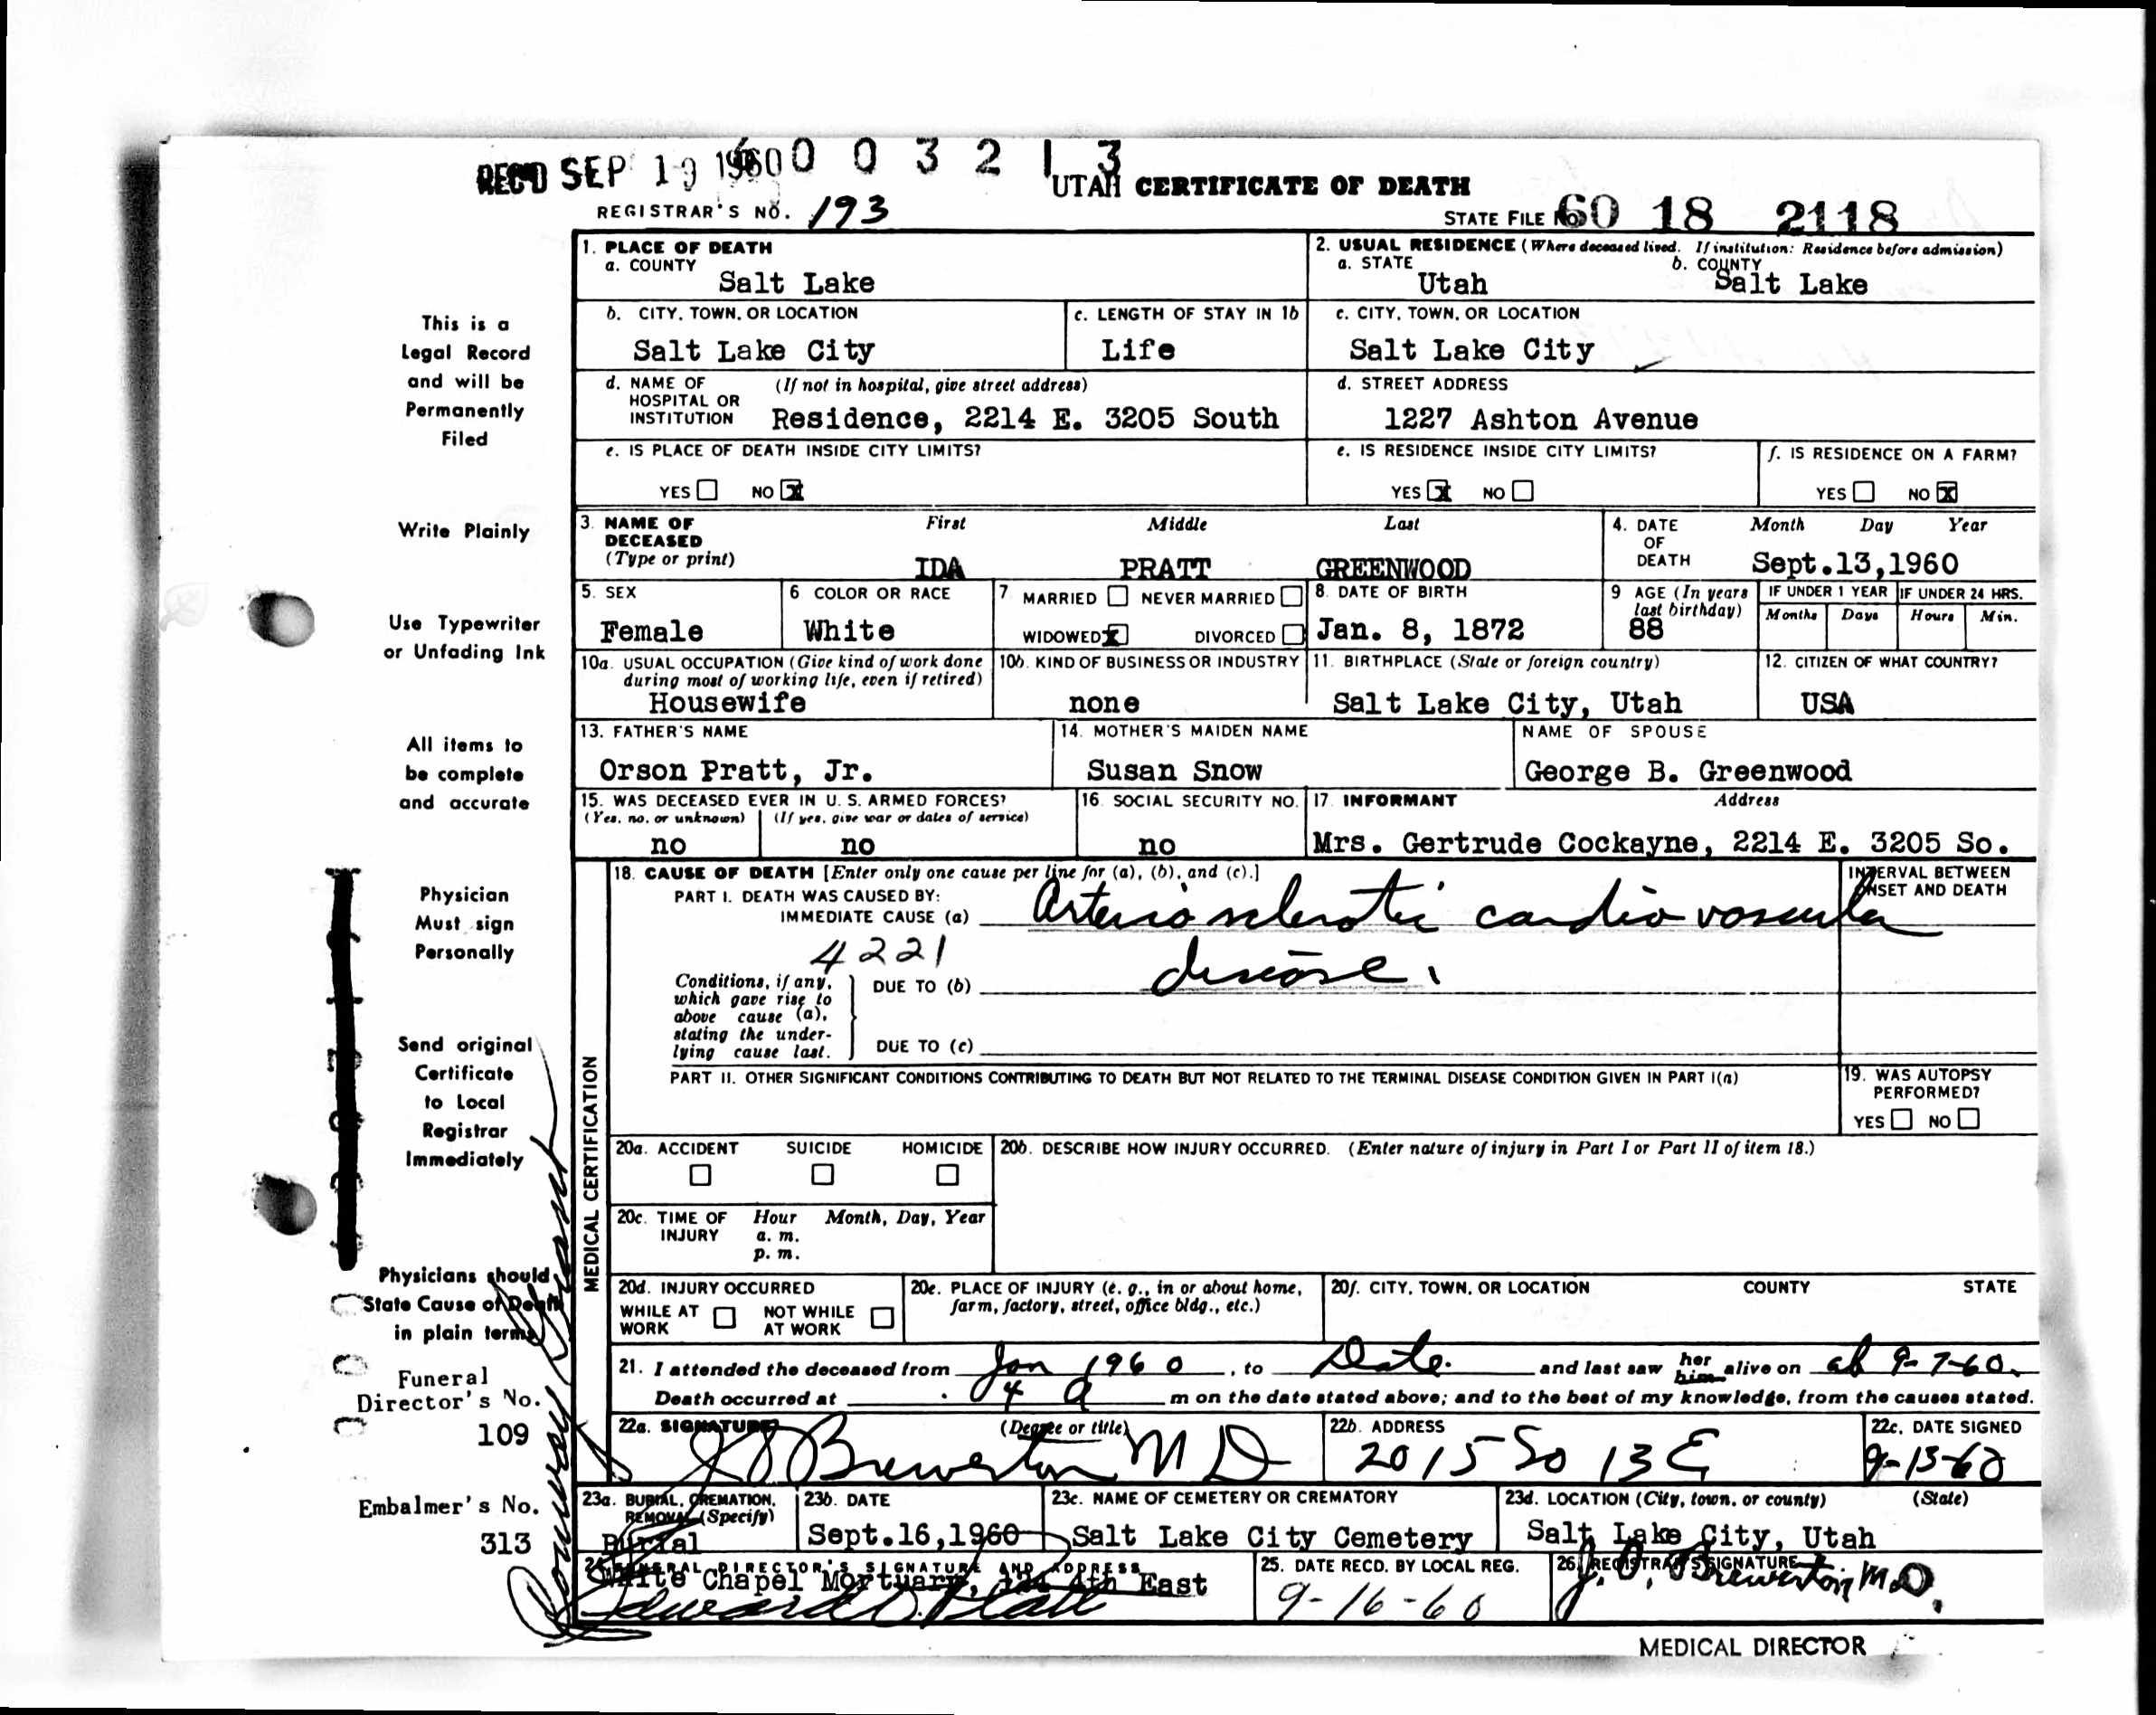 REC'D SEP 19 1960 0 0 3 2 1 3
UTAH CERTIFICATE OF DEATH
REGISTRAR'S NO. 193
STATE FILE NO. 60 18 2118
This is a
Legal Record
and will be
Permanently
Filed
Write Plainly
Use Typewriter
or Unfading Ink
All items to
be complete
and accurate
Physician
Must sign
Personally
Send original
Certificate
to Local
Registrar
Immediately
Physicians should
State Cause of Death
in plain terms
Funeral
Director's No.
109
Embalmer's No.
313
1. PLACE OF DEATH
a. COUNTY
Salt Lake
2. USUAL RESIDENCE (Where deceased lived. If institution: Residence before admission)
a. STATE b. COUNTY
Utah Salt Lake
b. CITY, TOWN, OR LOCATION
Salt Lake City
c. LENGTH OF STAY IN 1b
Life
c. CITY, TOWN, OR LOCATION
Salt Lake City
d. NAME OF (If not in hospital, give street address)
HOSPITAL OR
INSTITUTION Residence, 2214 E. 3205 South
d. STREET ADDRESS
1227 Ashton Avenue
e. IS PLACE OF DEATH INSIDE CITY LIMITS?
YES NO X
e. IS RESIDENCE INSIDE CITY LIMITS?
YES X NO
f. IS RESIDENCE ON A FARM?
YES NO X
3. NAME OF DECEASED
(Type or print)
First Middle Last
IDA PRATT GREENWOOD
4. DATE OF DEATH
Month Day Year
Sept.13,1960
5. SEX
Female
6 COLOR OR RACE
White
7 MARRIED NEVER MARRIED
WIDOWED X DIVORCED
8. DATE OF BIRTH
Jan. 8, 1872
9 AGE (In years
last birthday)
88
IF UNDER 1 YEAR IF UNDER 24 HRS.
Months Days Hours Min.
10a. USUAL OCCUPATION (Give kind of work done
during most of working life, even if retired)
Housewife
10b. KIND OF BUSINESS OR INDUSTRY
none
11. BIRTHPLACE (State or foreign country)
Salt Lake City, Utah
12. CITIZEN OF WHAT COUNTRY?
USA
13. FATHER'S NAME
Orson Pratt, Jr.
14. MOTHER'S MAIDEN NAME
Susan Snow
NAME OF SPOUSE
George B. Greenwood
15. WAS DECEASED EVER IN U. S. ARMED FORCES?
(Yes, no, or unknown) (If yes, give war or dates of service)
no no
16. SOCIAL SECURITY NO.
no
17. INFORMANT Address
Mrs. Gertrude Cockayne, 2214 E. 3205 So.
MEDICAL CERTIFICATION
18. CAUSE OF DEATH [Enter only one cause per line for (a), (b), and (c).]
PART I. DEATH WAS CAUSED BY:
IMMEDIATE CAUSE (a) Arteriosclerotic cardio vascular
INTERVAL BETWEEN
ONSET AND DEATH
4221
Conditions, if any,
which gave rise to
above cause (a),
stating the under-
lying cause last.
DUE TO (b) disease.
DUE TO (c)
PART II. OTHER SIGNIFICANT CONDITIONS CONTRIBUTING TO DEATH BUT NOT RELATED TO THE TERMINAL DISEASE CONDITION GIVEN IN PART I(a)
19. WAS AUTOPSY
PERFORMED?
YES NO
20a. ACCIDENT SUICIDE HOMICIDE
20b. DESCRIBE HOW INJURY OCCURRED. (Enter nature of injury in Part I or Part II of item 18.)
20c. TIME OF INJURY
Hour Month, Day, Year
a. m.
p. m.
20d. INJURY OCCURRED
WHILE AT WORK NOT WHILE AT WORK
20e. PLACE OF INJURY (e. g., in or about home,
farm, factory, street, office bldg., etc.)
20f. CITY, TOWN, OR LOCATION COUNTY STATE
21. I attended the deceased from Jan 1960, to Date. and last saw her him alive on 9-7-60.
Death occurred at 4 a m on the date stated above; and to the best of my knowledge, from the causes stated.
22a. SIGNATURE (Degree or title)
Brewerton M D
22b. ADDRESS
2015 So 13 E
22c. DATE SIGNED
9-15-60
23a. BURIAL, CREMATION,
REMOVAL (Specify)
Burial
23b. DATE
Sept.16,1960
23c. NAME OF CEMETERY OR CREMATORY
Salt Lake City Cemetery
23d. LOCATION (City, town, or county) (State)
Salt Lake City, Utah
24. FUNERAL DIRECTOR'S SIGNATURE AND ADDRESS
White Chapel Mortuary, 4th East
25. DATE RECD. BY LOCAL REG.
9-16-60
26. REGISTRAR'S SIGNATURE
J. D. Brewerton, M.D.
MEDICAL DIRECTOR